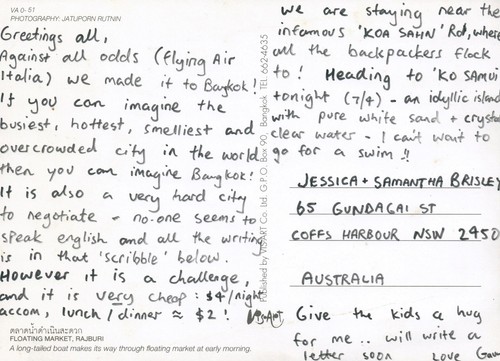 VA 0-51
PHOTOGRAPHY: JATUPORN RUTNIN
Greetings all,
Against all odds (flying Air
Italia) we made it to Bangkok!
If you can imagine the
busiest, hottest, smelliest and
overcrowded city in the world
then you can imagine Bangkok!
It is also a very hard city
to negotiate - no-one seems to
speak english and all the writing
is in that 'scribble' below.
However it is a challenge,
and it is very cheap: $4/night
accom, lunch/dinner ≈ $2!
ตลาดน้ำดำเนินสะดวก
FLOATING MARKET, RAJBURI
A long-tailed boat makes its way through floating market at early morning.
Published by VISART Co. Ltd. G.P.O. Box 90, Bangkok TEL. 662-4635
we are staying near the
infamous 'KOA SAHN' Rd, where
all the backpackers flock
to! Heading to 'KO SAMUI
tonight (7/4) - an idyllic island
with pure white sand + crystal
clear water - I can't wait to
go for a swim!!
JESSICA + SAMANTHA BRISLEY
65 GUNDAGAI ST
COFFS HARBOUR NSW 2450
AUSTRALIA
Give the kids a hug
for me.. will write a
letter soon Love